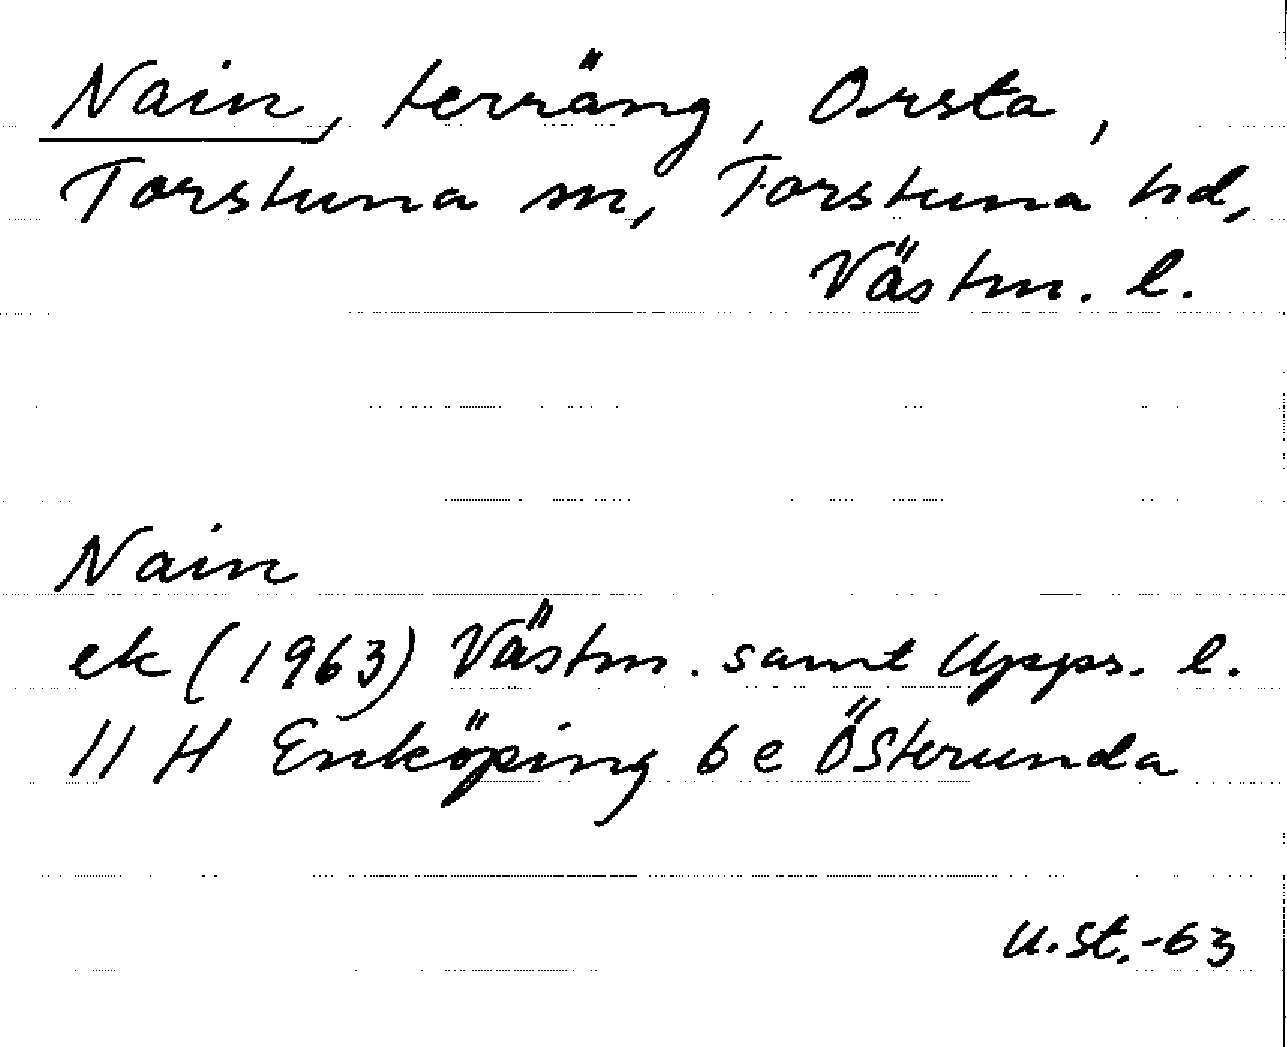 Nain, terräng, Orsta,
Torstuna sn, Torstuna hd,
Västm. l.
Nain
ek (1963) Västm. samt Upps. l.
11 H Enköping 6 e Österunda
U.St.-63